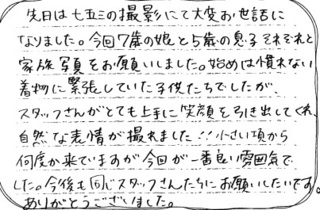 先日は七五三の撮影にて大変お世話に
なりました。今回7歳の娘と5歳の息子それぞれと
家族写真をお願いしました。始めは慣れない
着物に緊張していた子供たちでしたが、
スタッフさんがとても上手に笑顔を引き出してくれ、
自然な表情が撮れました!!小さい頃から
何度か来ていますが今回が一番良い雰囲気で
した。今後も同じスタッフさんたちにお願いしたいです。
ありがとうございました。